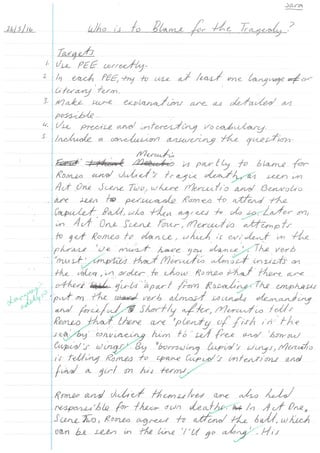 Sara
26/3/14 Who is to Blame for the Tragedy?
Targets
1. Use PEE correctly.
2. In each PEE, try to use at least one language or
literary term.
3. Make sure explanations are as detailed as
possible.
4. Use precise and interesting vocabulary.
5. Include a conclusion answering the question.
Mercutio
is partly to blame for
Romeo and Juliet's tragic death, as seen in
Act One Scene Two, where Mercutio and Benvolio
are seen to persuade Romeo to attend the
Capulet Ball, who then agrees to do so. Later on,
in Act One Scene Four, Mercutio attempts
to get Romeo to dance, which is evident in the
phrase 'we must have you dance'. The verb
'must' implies that Mercutio almost insists on
the idea, in order to show Romeo that there are
other girls apart from Rosaline. The emphasis
put on the verb almost sounds demanding
and forceful. Shortly after, Mercutio tells
Romeo that there are 'plenty of fish in the
sea' by convincing him to 'set free and 'borrow
Cupid's wings'. By 'borrowing Cupid's wings, Mercutio
is telling Romeo to ignore Cupid's intentions and
find a girl on his terms.
Romeo and Juliet themselves are also held
responsible for their own deaths. In Act One,
Scene Two, Romeo agrees to attend the ball, which
can be seen in the line 'I'll go along'. His